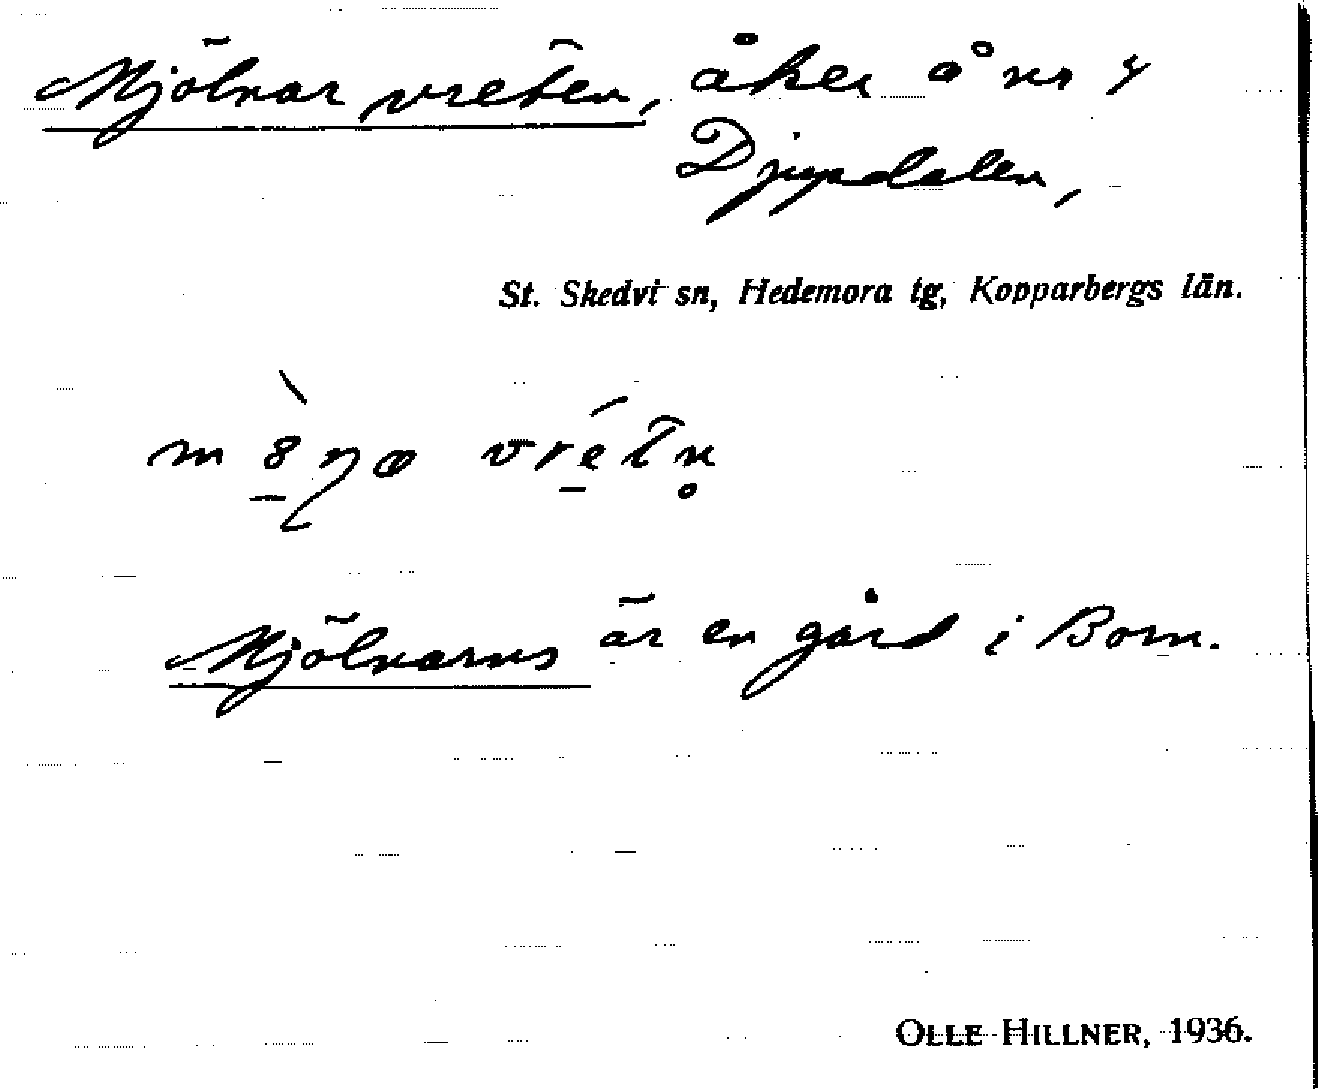 Mjölnar vreten, åker å nr 4
Djupdalen,
St. Skedvi sn, Hedemora tg, Kopparbergs län.
Mjölnarns är en gård i Born.
OLLE HILLNER, 1936.